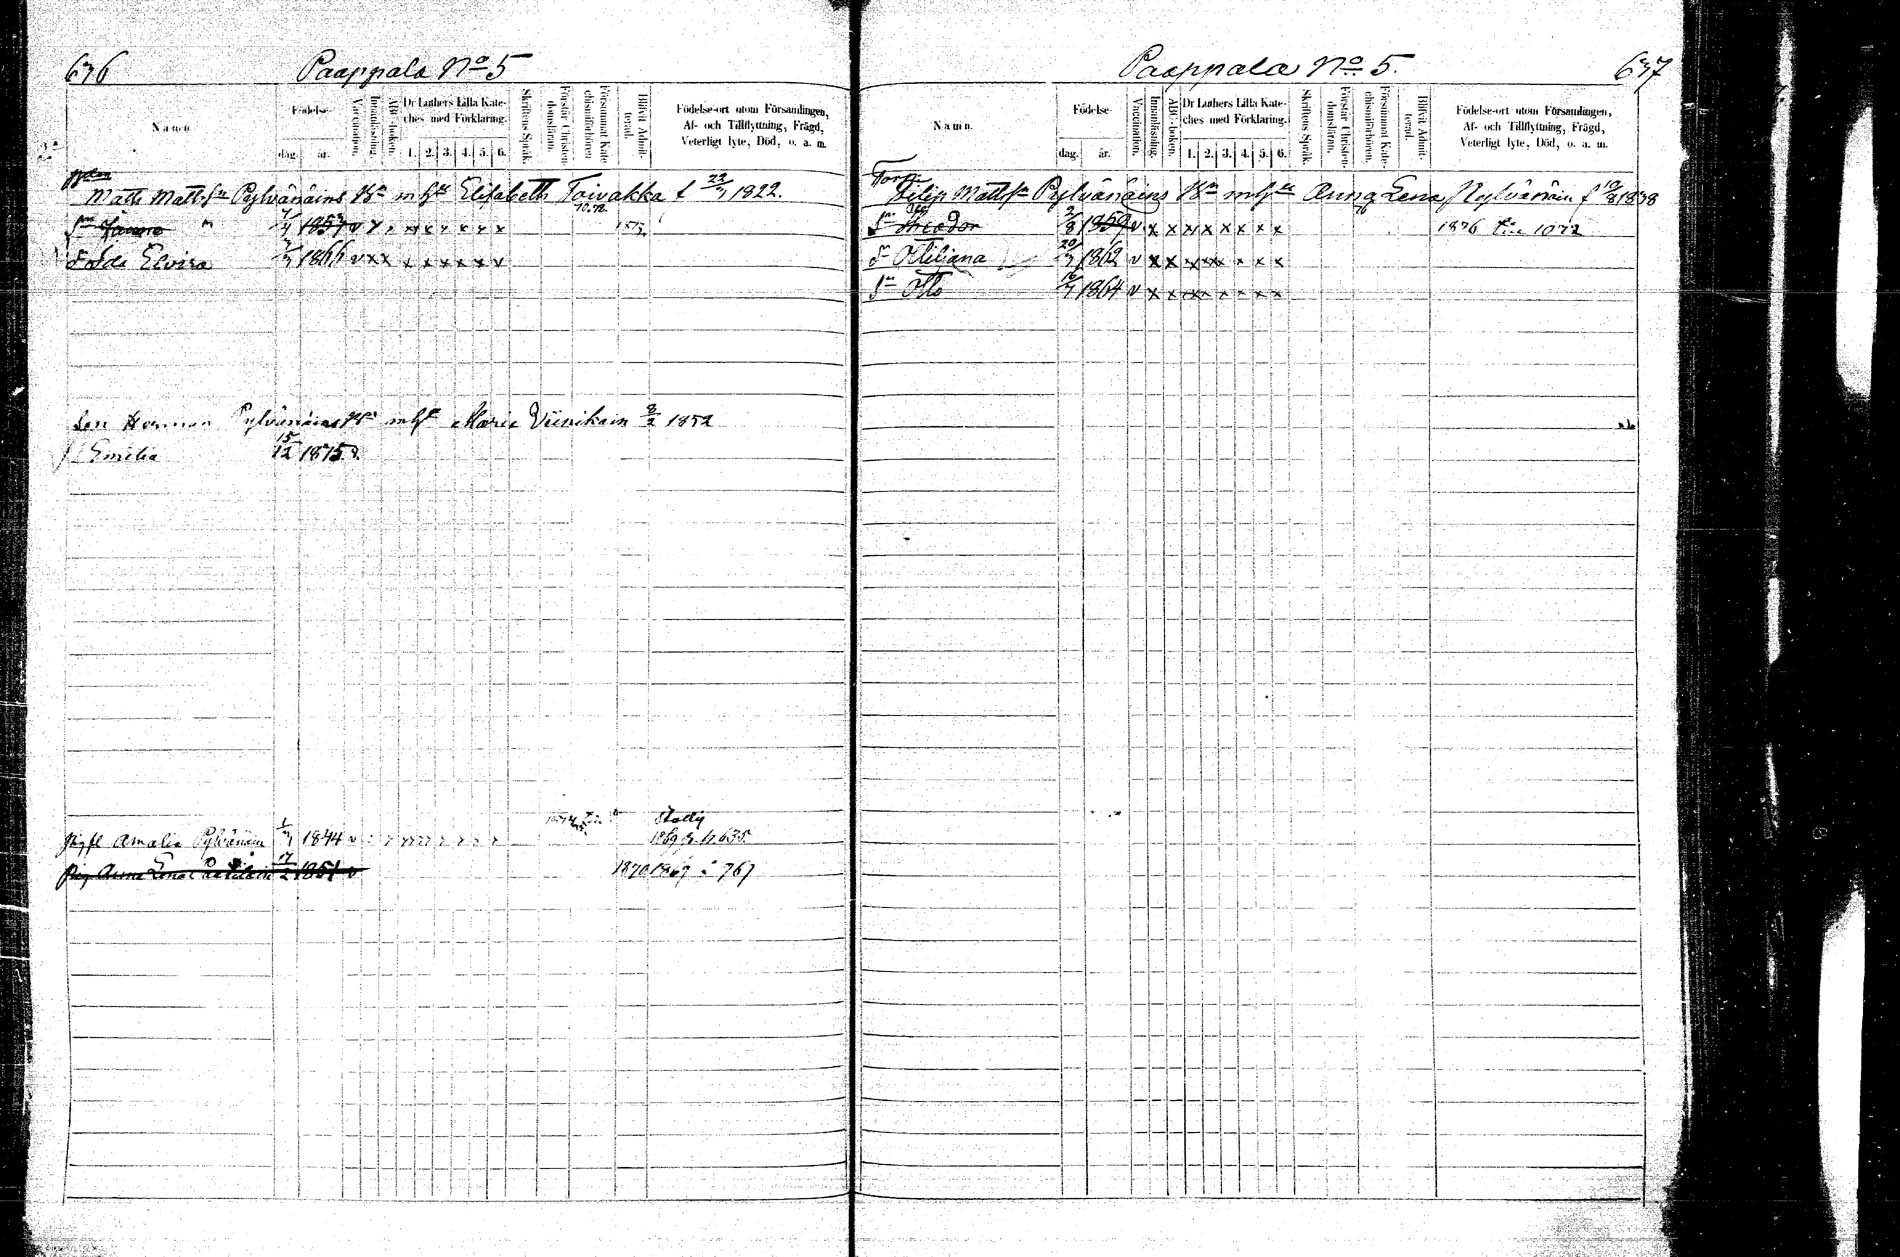 636 Paappala No 5
Namn. Födelse- dag. år. Vaccination. Innanläsning. ABC-boken. Dr Luthers Lilla Kateches med Förklaring. 1. 2. 3. 4. 5. 6. Skriftens Språk. Förstår Christendomsläran. Försummat Katechismiförhören. Blifvit Admitterad. Födelse-ort utom Församlingen, Af- och Tillflyttning, Frägd, Veterligt lyte, Död, o. a. m.
Matts Matts Sn Pylvänäins Bn m hu Elisabeth Toivakka f 22/7 1822.
Sn 1/4 1853 v
D Ida Elvira 2/7 1866 v x x x x x x x x v
Son Herman Pylvänäins m h Maria Viinikain 8/2 1852
Emilia 15/12 1875 v.
Amalia Pylvänäin 1/7 1844 v 1869 p. 635.
Anna Lena 17/2 1851 v 1870 1869 767
Paappala No 5. 637
Namn. Födelse dag. år. Vaccination. Innanläsning. ABC-boken. Dr Luthers Lilla Kateches med Förklaring. 1. 2. 3. 4. 5. 6. Skriftens Språk. Förstår Christendomsläran. Försummat Katechismiförhören. Blifvit Admitterad. Födelse-ort utom Församlingen, Af- och Tillflyttning, Frägd, Veterligt lyte, Död, o. a. m.
Torp.
Filip Matts Sn Pylvänäins Bn m hu Anna Lena Pylvänäin f 10/8 1838
Sn Theodor 2/8 1859 v x x x x x x x x 1876 1072
D Otteliana 20/7 1862 v x x x x x x x x
Sn Otto 16/7 1864 v x x x x x x x x